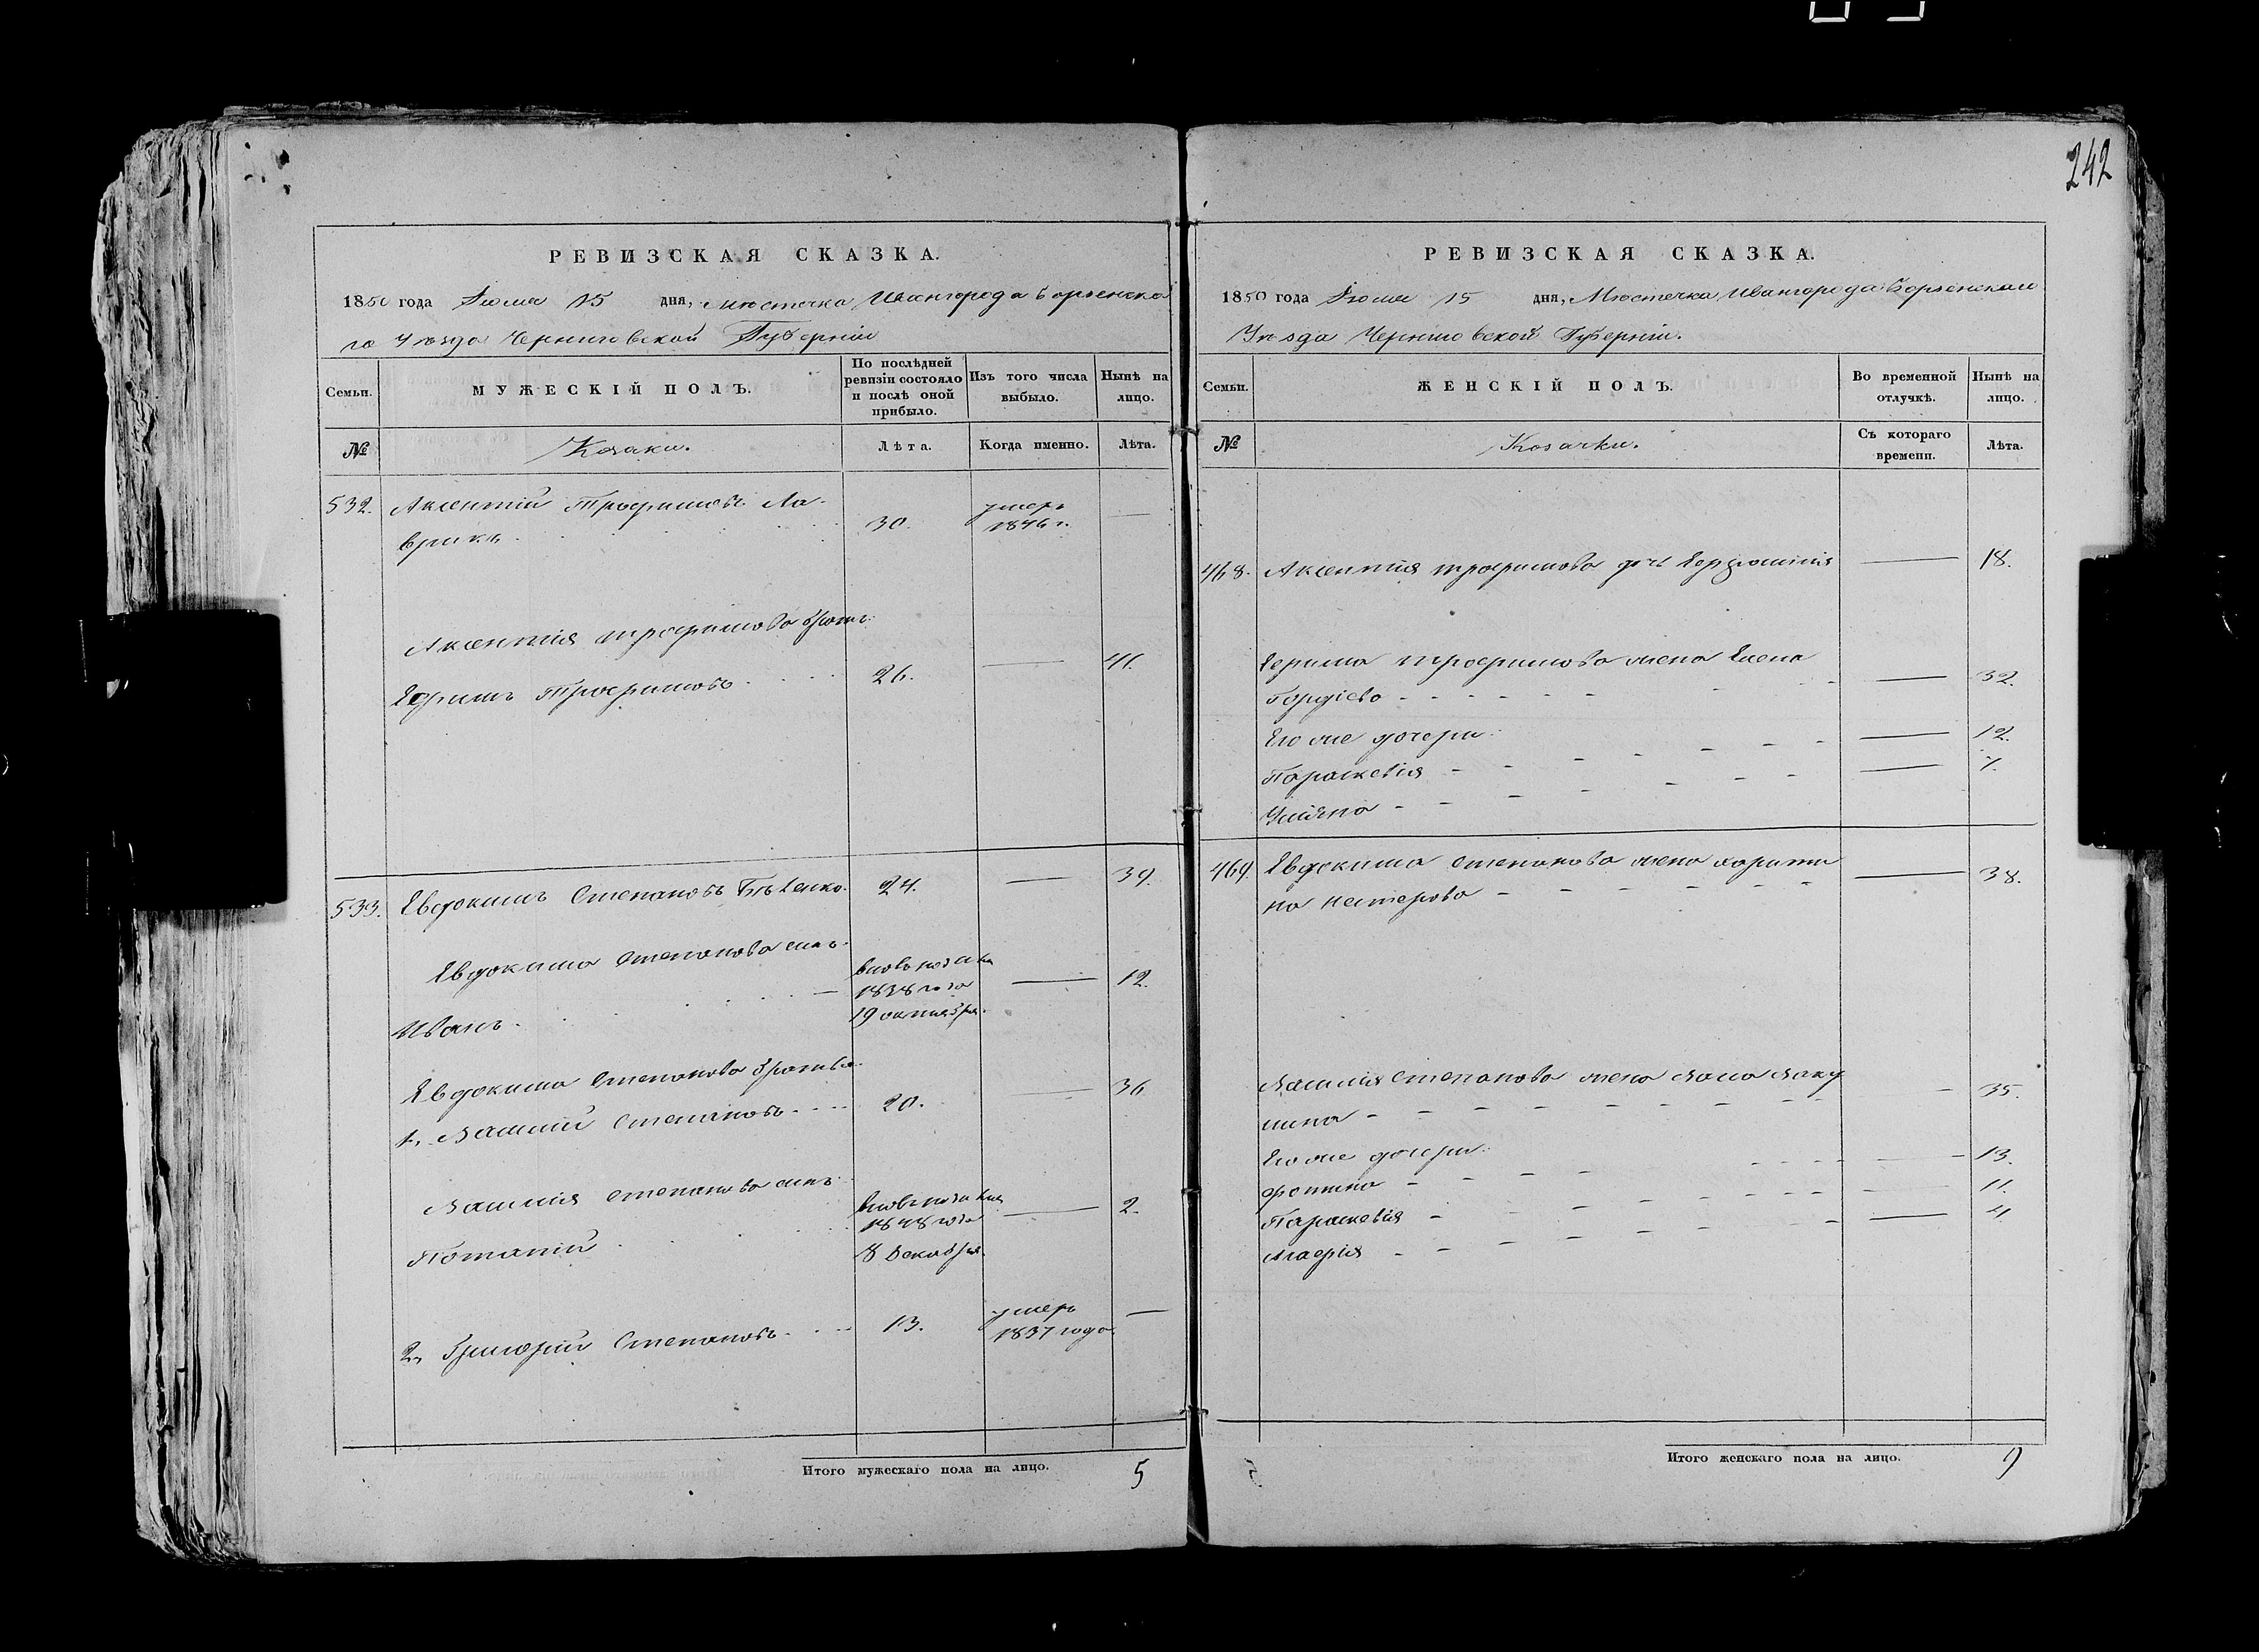 242
РЕВИЗСКАЯ СКАЗКА.
1850 года Іюля 15 дня, Мѣстечка Ивангорода Борзенска
го Уѣзда Черниговской Губерніи
Семьи.
МУЖЕСКІЙ ПОЛЪ.
По послѣдней ревизіи состояло и послѣ оной прибыло.
Изъ того числа выбыло.
Нынѣ на лицо.
№
Козаки.
Лѣта.
Когда именно.
Лѣта.
532. Аксентій Трофимовъ Ла-
врикъ 30. умеръ 1846 г. —
Аксентія Трофимова братъ
Ефимъ Трофимовъ 26. — 41.
533. Евдокимъ Степановъ 24. — 39.
Евдокима Степанова сынъ
Иванъ 1838 года 19 октября. — 12.
Евдокима Степанова братья
1, Василій Степановъ 20. — 36
Василія Степанова сынъ
Потапій 1848 года 8 Декабря. — 2.
2, Григорій Степановъ 13. умеръ 1837 года —
Итого мужескаго пола на лицо. 5
РЕВИЗСКАЯ СКАЗКА.
1850 года Іюля 15 дня, Мѣстечка Ивангорода Борзенскаго
Уѣзда Черниговской Губерніи.
Семьи.
ЖЕНСКІЙ ПОЛЪ.
Во временной отлучкѣ.
Нынѣ на лицо.
№
Козачки.
Съ котораго времени.
Лѣта.
468. Аксентія Трофимова дочь — 18.
Ефима Трофимова жена Елена
Гордіева — 32.
Его же дочери
Параскевія — 12.
Уліяна — 7.
469. Евдокима Степанова жена Харити
на Нестерова — 38.
Василія Степанова жена
— 35.
Его же дочери
Фотина — 13.
Параскевія — 11.
Агафія — 4
Итого женскаго пола на лицо. 9